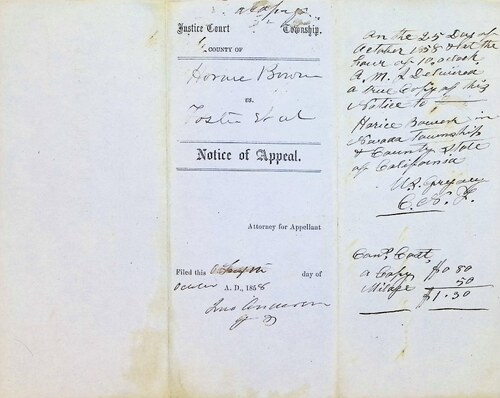 Justice Court Township.
COUNTY OF
Horace Bowen
vs.
Foster et al
Notice of Appeal.
Attorney for Appellant
Filed this day of
October A. D., 1858
Jno Anderson
On the 25 Day of
October 1858 at the
hour of 10 oclock
A. M. I Delivered
a true Copy of this
Notice to
Horice Bowen in
Nevada Township
& County State
of California
Gregory
Const. Cost
a Copy $0 80
Milage 50
$1.30